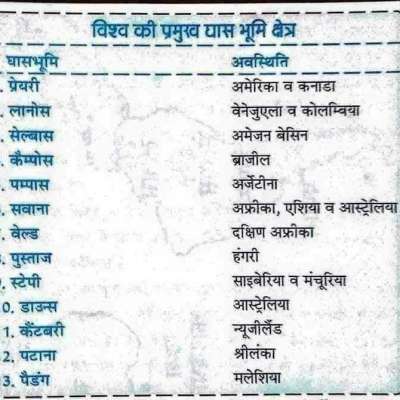 विश्व की प्रमुख घास भूमि क्षेत्र
घासभूमि अवस्थिति
. प्रेयरी अमेरिका व कनाडा
. लानोस वेनेजुएला व कोलम्बिया
. सेल्बास अमेजन बेसिन
. कैम्पोस ब्राजील
. पम्पास अर्जेटीना
. सवाना अफ्रीका, एशिया व आस्ट्रेलिया
. वेल्ड दक्षिण अफ्रीका
. पुस्ताज हंगरी
. स्टेपी साइबेरिया व मंचूरिया
0. डाउन्स आस्ट्रेलिया
1. कैंटबरी न्यूजीलैंड
2. पटाना श्रीलंका
3. पैडंग मलेशिया